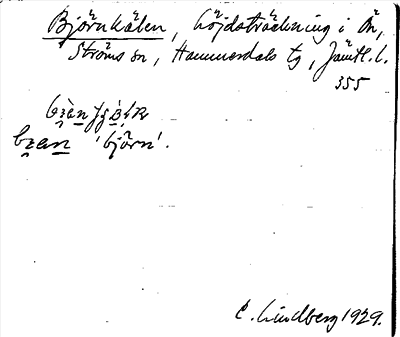 Björnkälen, höjdsträckning i Ån,
Ströms sn, Hammerdals tg, Jämtl. l.
355
'björn'.
E. Lindberg 1929.